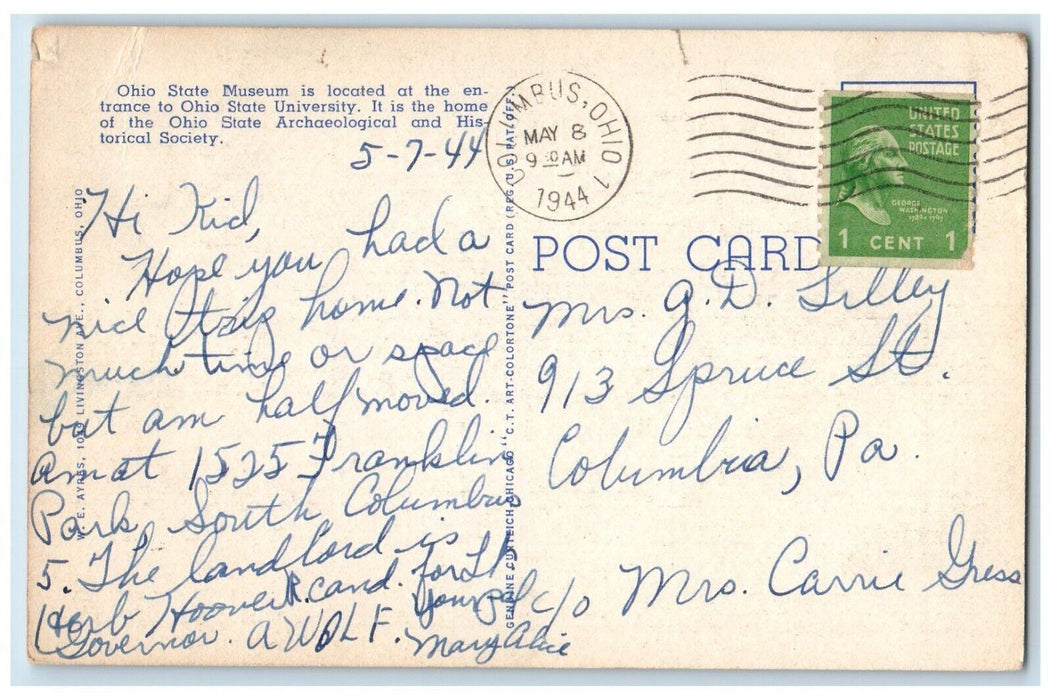 Ohio State Museum is located at the en-
trance to Ohio State University. It is the home
of the Ohio State Archaeological and His-
torical Society.
5-7-44
Hi Kid,
Hope you had a
nice trip home. Not
much time or space
but am half moved.
am at 1525 Franklin
Park South Columbus
5. The landlord is
Herb Hoover R. cand. for Lt
Governor. A WOLF.
Yours
Mary Alice
W. E. AYRES, LIVINGSTON AVE., COLUMBUS, OHIO
GENUINE CURTEICH-CHICAGO "C.T. ART-COLORTONE" POST CARD (REG. U.S. PAT. OFF.)
COLUMBUS, OHIO 1
MAY 8
9 30 AM
1944
UNITED
STATES
POSTAGE
GEORGE
WASHINGTON
1789-1797
1 CENT 1
POST CARD
Mrs. G. D. Lilley
913 Spruce St.
Columbia, Pa.
c/o Mrs. Carrie Gress